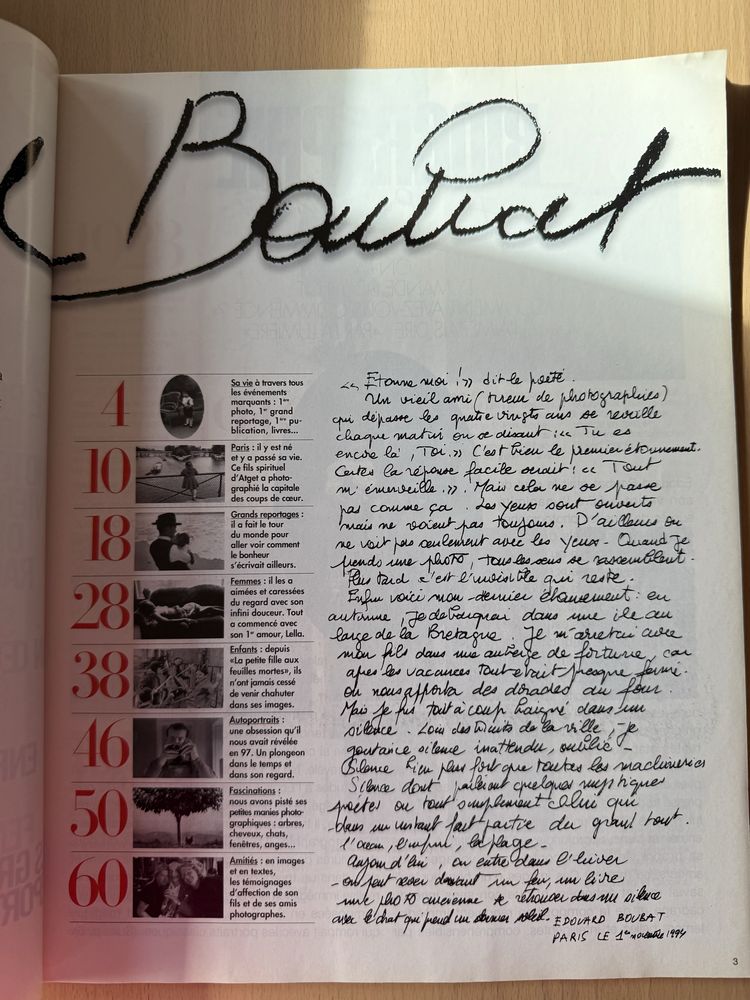 Boubat
4
Sa vie à travers tous
les événements
marquants : 1ère
photo, 1er grand
reportage, 1ère pu-
blication, livres...
10
Paris : il y est né
et y a passé sa vie.
Ce fils spirituel
d'Atget a photo-
graphié la capitale
des coups de cœur.
18
Grands reportages :
il a fait le tour
du monde pour
aller voir comment
le bonheur
s'écrivait ailleurs.
28
Femmes : il les a
aimées et caressées
du regard avec son
infini douceur. Tout
a commencé avec
son 1er amour, Lella.
38
Enfants : depuis
«La petite fille aux
feuilles mortes», ils
n'ont jamais cessé
de venir chahuter
dans ses images.
46
Autoportraits :
une obsession qu'il
nous avait révélée
en 97. Un plongeon
dans le temps et
dans son regard.
50
Fascinations :
nous avons pisté ses
petites manies photo-
graphiques : arbres,
cheveux, chats,
fenêtres, anges...
60
Amitiés : en images
et en textes,
les témoignages
d'affection de son
fils et de ses amis
photographes.
« Etonne moi ! » dit le poète.
Un vieil ami (tireur de photographies)
qui dépasse les quatre vingts ans se reveille
chaque matin en se disant : « Tu es
encore là, Toi. » C'est bien le premier étonnement.
Certes la réponse facile serait : « Tout
m'émerveille. » Mais cela ne se passe
pas comme ça. Les yeux sont ouverts
mais ne voient pas toujours. D'ailleurs on
ne voit pas seulement avec les yeux - Quand je
prends une photo, tous les sens se rassemblent.
Plus tard c'est l'invisible qui reste.
Enfin voici mon dernier étonnement : en
automne, je debarquai dans une ile au
large de la Bretagne. Je m'arretai avec
mon fils dans une auberge de fortune, car
après les vacances tout etait presque fermé.
On nous apporta des dorades au four.
Mais je fus tout à coup baigné dans un
silence. Loin des bruits de la ville, je
goutai ce silence inattendu, oublié -
Silence bien plus fort que toutes les machineries
Silence dont parlaient quelques mystiques
poètes ou tout simplement celui qui
dans un instant fait partie du grand tout.
l'océan, l'infini, la plage -
Aujourd'hui, on entre dans l'hiver
- on peut rever devant un feu, un livre
une photo ancienne se retrouver dans un silence
avec le chat qui prend un dernier soleil.
EDOUARD BOUBAT
PARIS LE 1er novembre
3